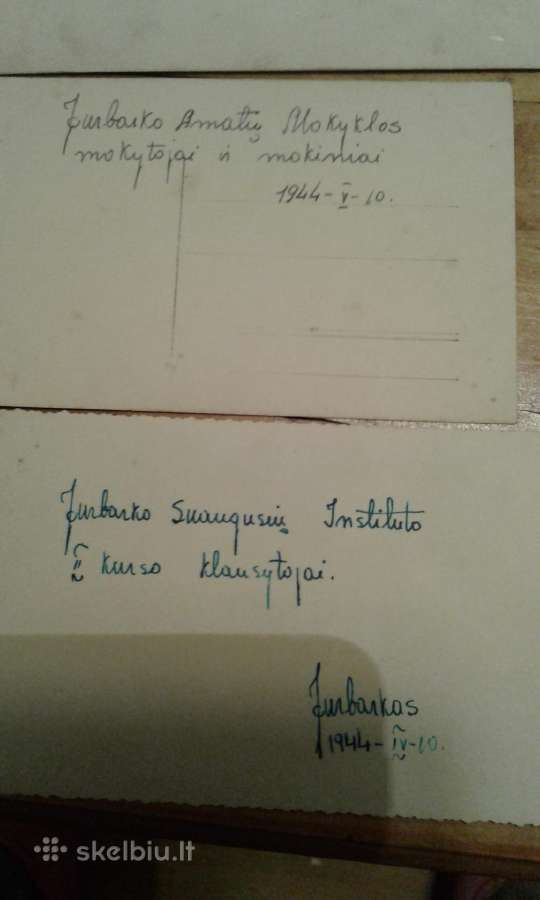 Jurbarko Amatų Mokyklos
mokytojai ir mokiniai
1944-V-10.
Jurbarko Suaugusių Instituto
II kurso klausytojai.
Jurbarkas
1944-IV-10.
skelbiu.lt